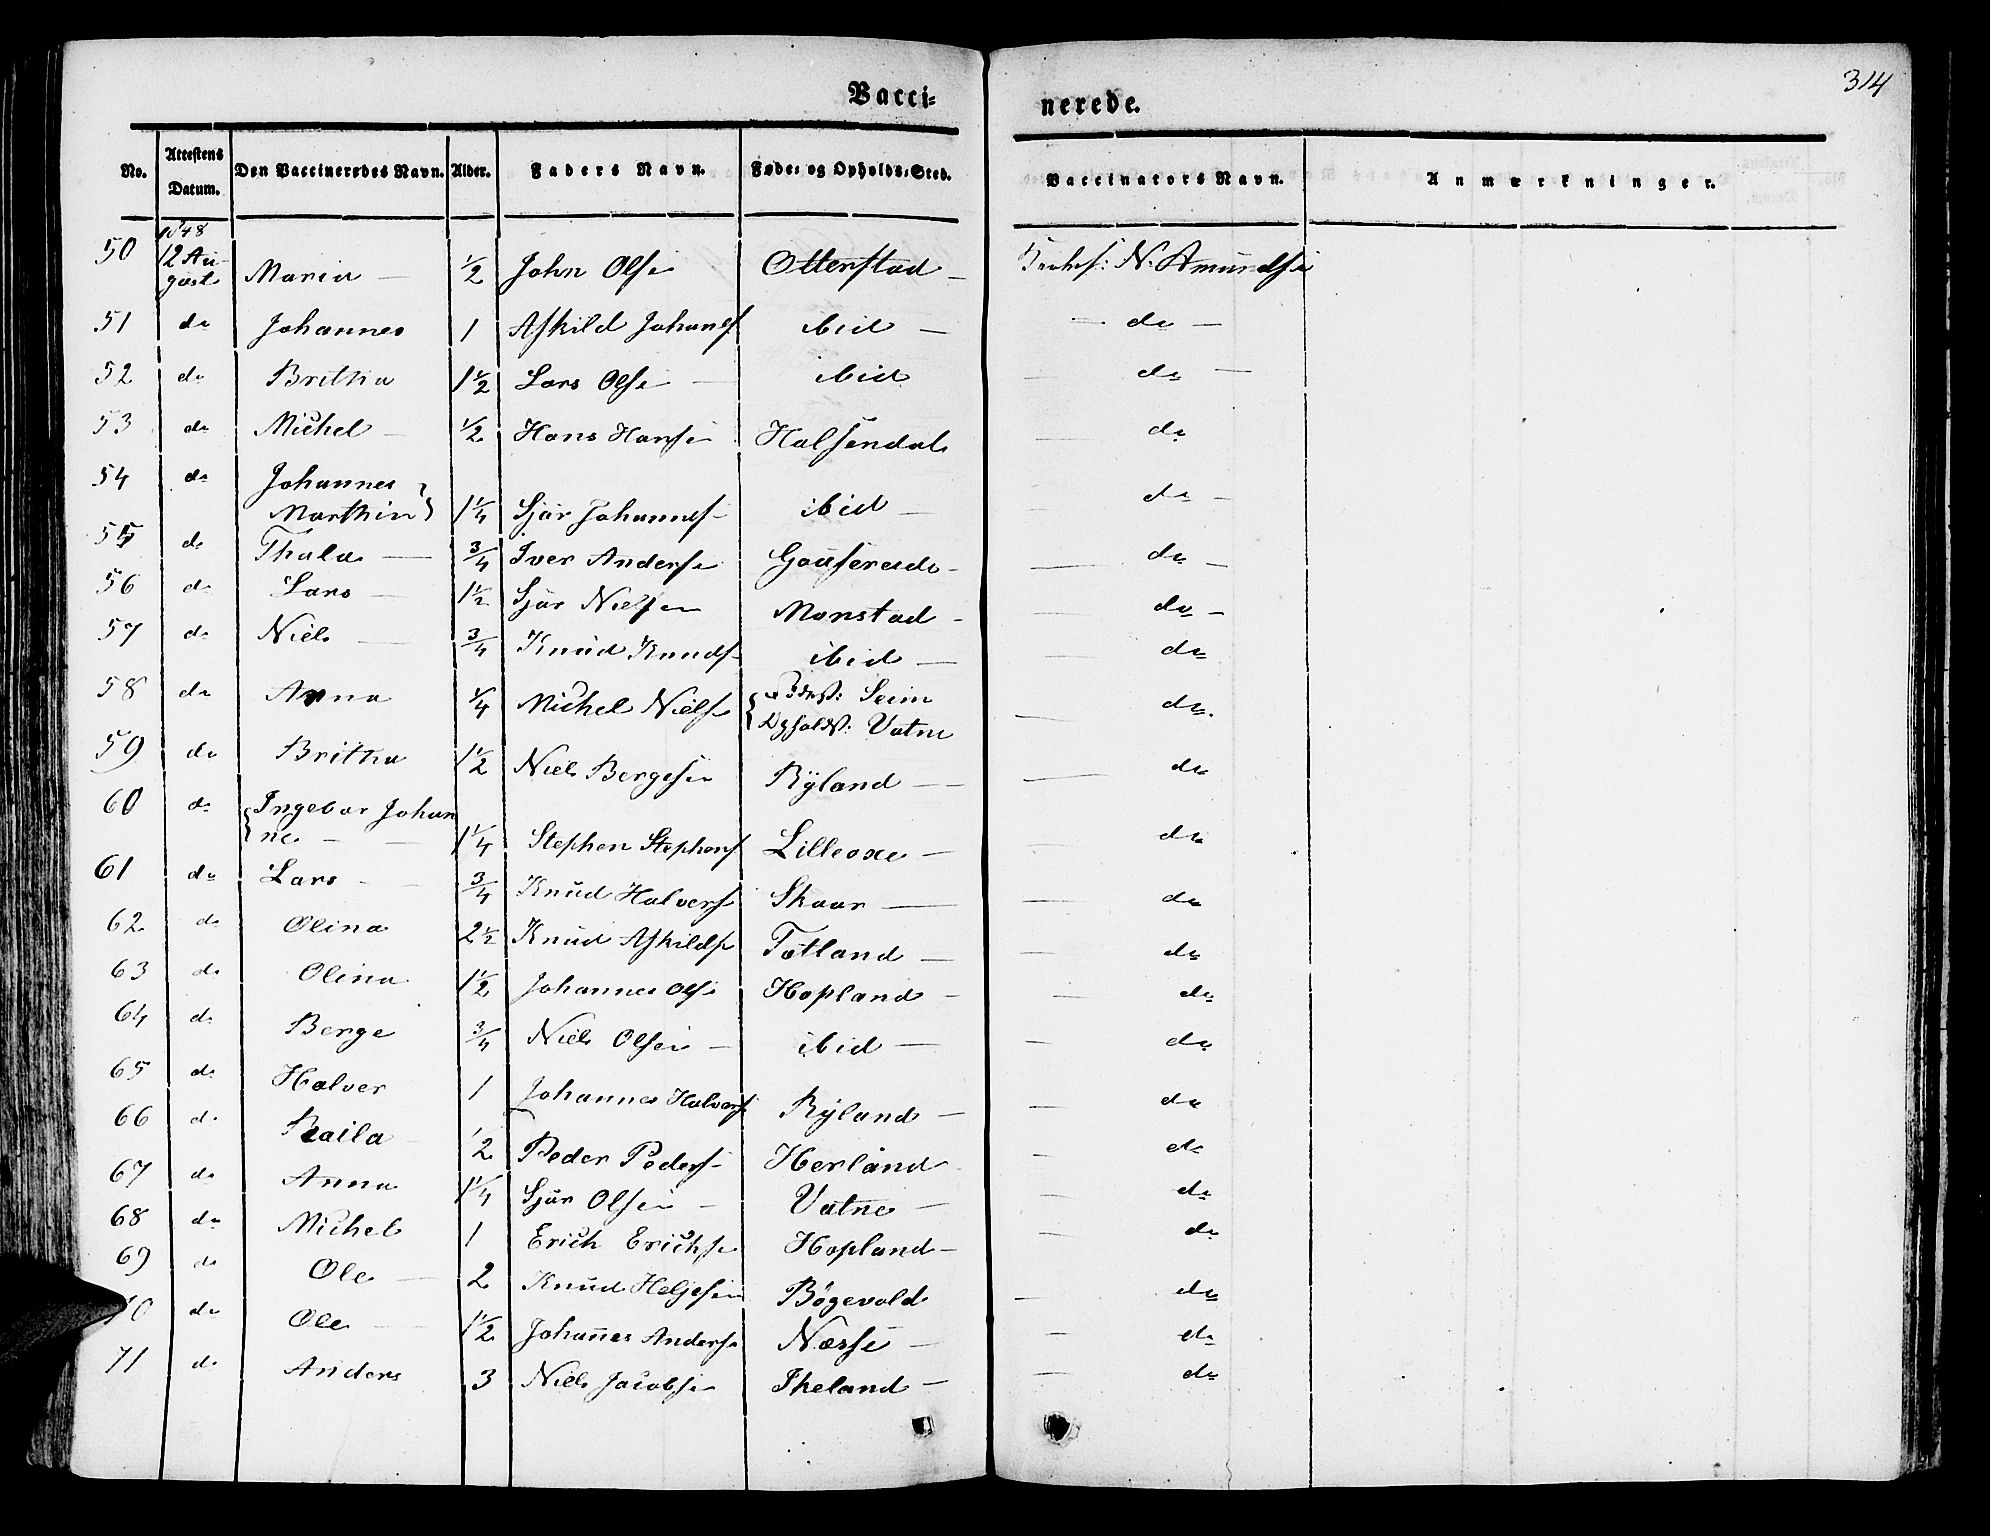 314
Vacci= nerede.
No. Attestens Datum. Den Vaccineredes Navn. Alder. Faders Navn. Føde- og Opholds-Sted. Vaccinators Navn. Anmærkninger.
1848
50 12 Au- gust Maria — 1/2 John Olse Otterstad — N. Amundse
51 do Johannes 1 Askild Johanes ibid — — do —
52 do Brittha 1 1/2 Lars Olse — ibid — do —
53 do Michel — 1/2 Hans Hanse Halsendal — do
54 do Johannes Marthin } 1 1/4 Sjur Johannes- ibid — — do —
55 do Thala — 3/4 Iver Anderse Gouserude- — do —
56 do Lars — 1 1/2 Sjur Nielsen Monstad - — do —
57 do Niels — 3/4 Knud Knuds- ibid — — do
58 do Anna 1/4 Michel Nielse { Fødest: Seim
Opholdst: Vatne — do.
59 do Brittha 1 1/2 Niels Bergesen Rÿland — — do
60 do { Ingebor Johan
ne — — 1 1/4 Stephen Stephens Lilleoxe — — do
61 do Lars — 3/4 Knud Halvers Skaar — — do
62 do Olina 2 1/2 Knud Askilds Totland — — do
63 do Olina 1 1/2 Johannes Olse Hopland — — do
64 do Berge 3/4 Niels Olsen — ibid — — do
65 do Halver 1 Johannes Halvers Rÿland — — do
66 do Raila — 1/2 Peder Peders- Herland — do
67 do Anna 1 1/4 Sjur Olsen — Vatne — — do
68 do Michel 1 Erich Erichse Hopland — do
69 do Ole — 2 Knud Heljesen Bøgevold — do
70 do Ole — 1 1/2 Johanes Anderse Næsse — — do
71 do Anders 3 Niels Jacobse Ikeland — — do